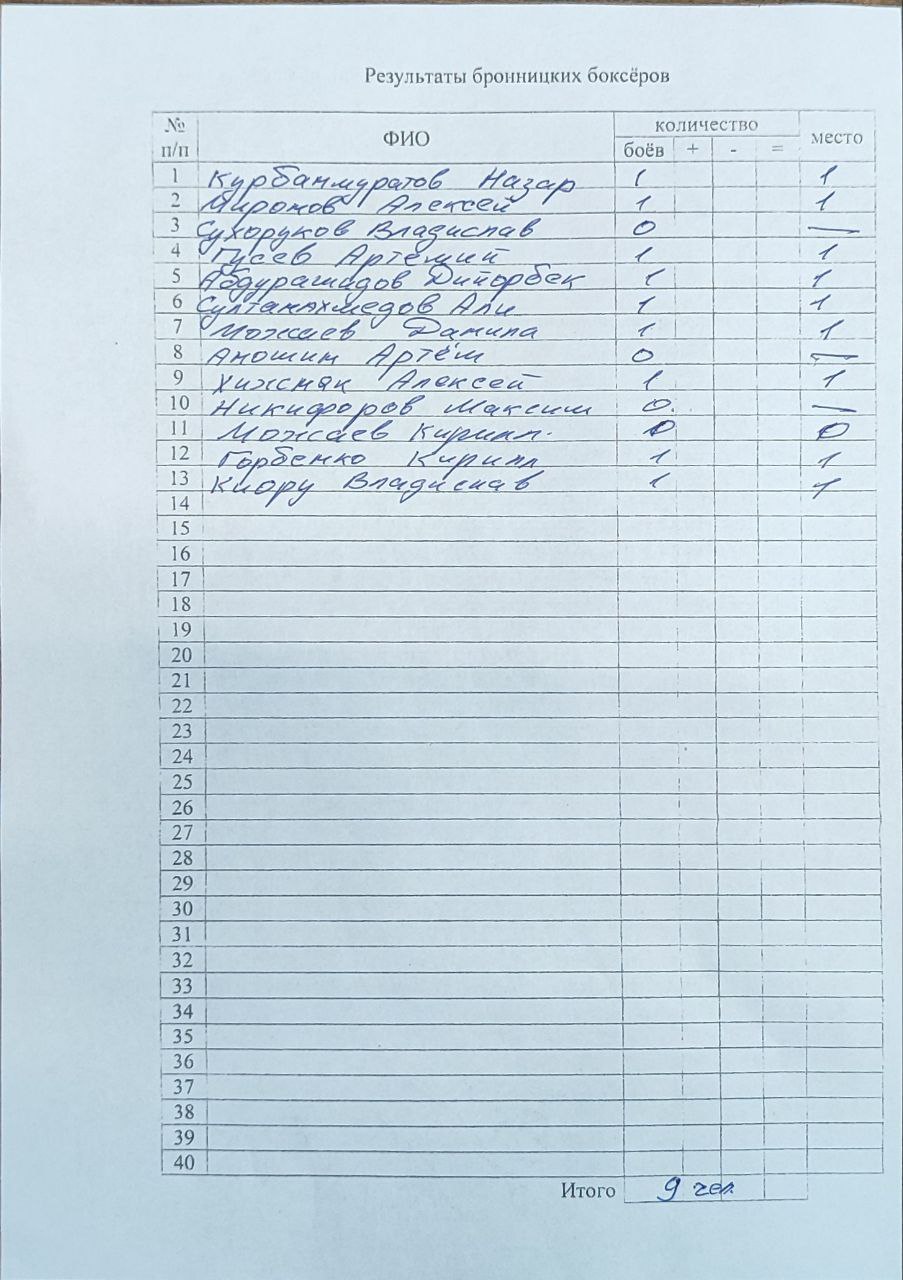 Результаты бронницких боксёров
№ п/п ФИО количество место
боёв + - =
1 Курбанмуратов Назар 1 1
2 Миронов Алексей 1 1
3 Сухоруков Владислав 0 —
4 Гусев Артёмий 1 1
5 Абдурашидов Диёрбек 1 1
6 Султанахмедов Али 1 1
7 Можаев Данила 1 1
8 Аношин Артём 0 —
9 Хижняк Алексей 1 1
10 Никифоров Максим 0. —
11 Можаев Кирилл. 0 0
12 Горбенко Кирилл 1 1
13 Киору Владислав 1 1
14
15
16
17
18
19
20
21
22
23
24
25
26
27
28
29
30
31
32
33
34
35
36
37
38
39
40
Итого 9 чел.